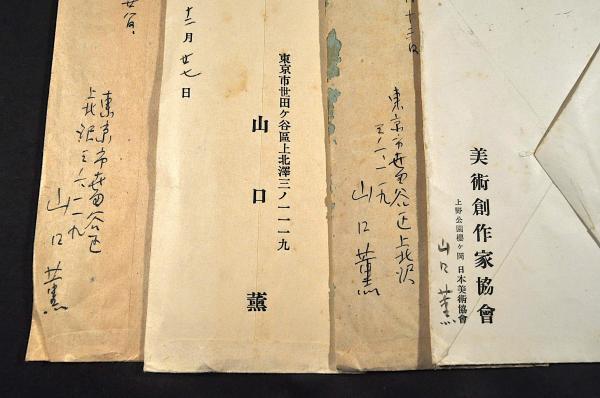 美術創作家協會
上野公園櫻ヶ岡 日本美術協會
山口薫
十二日
東京市世田谷区上北沢
三ノ一一一九
山口薫
東京市世田ヶ谷區上北澤三ノ一一一九
山口薫
十二月廿七日
廿八日
東京市世田谷区
上北沢三ノ一一一九
山口薫